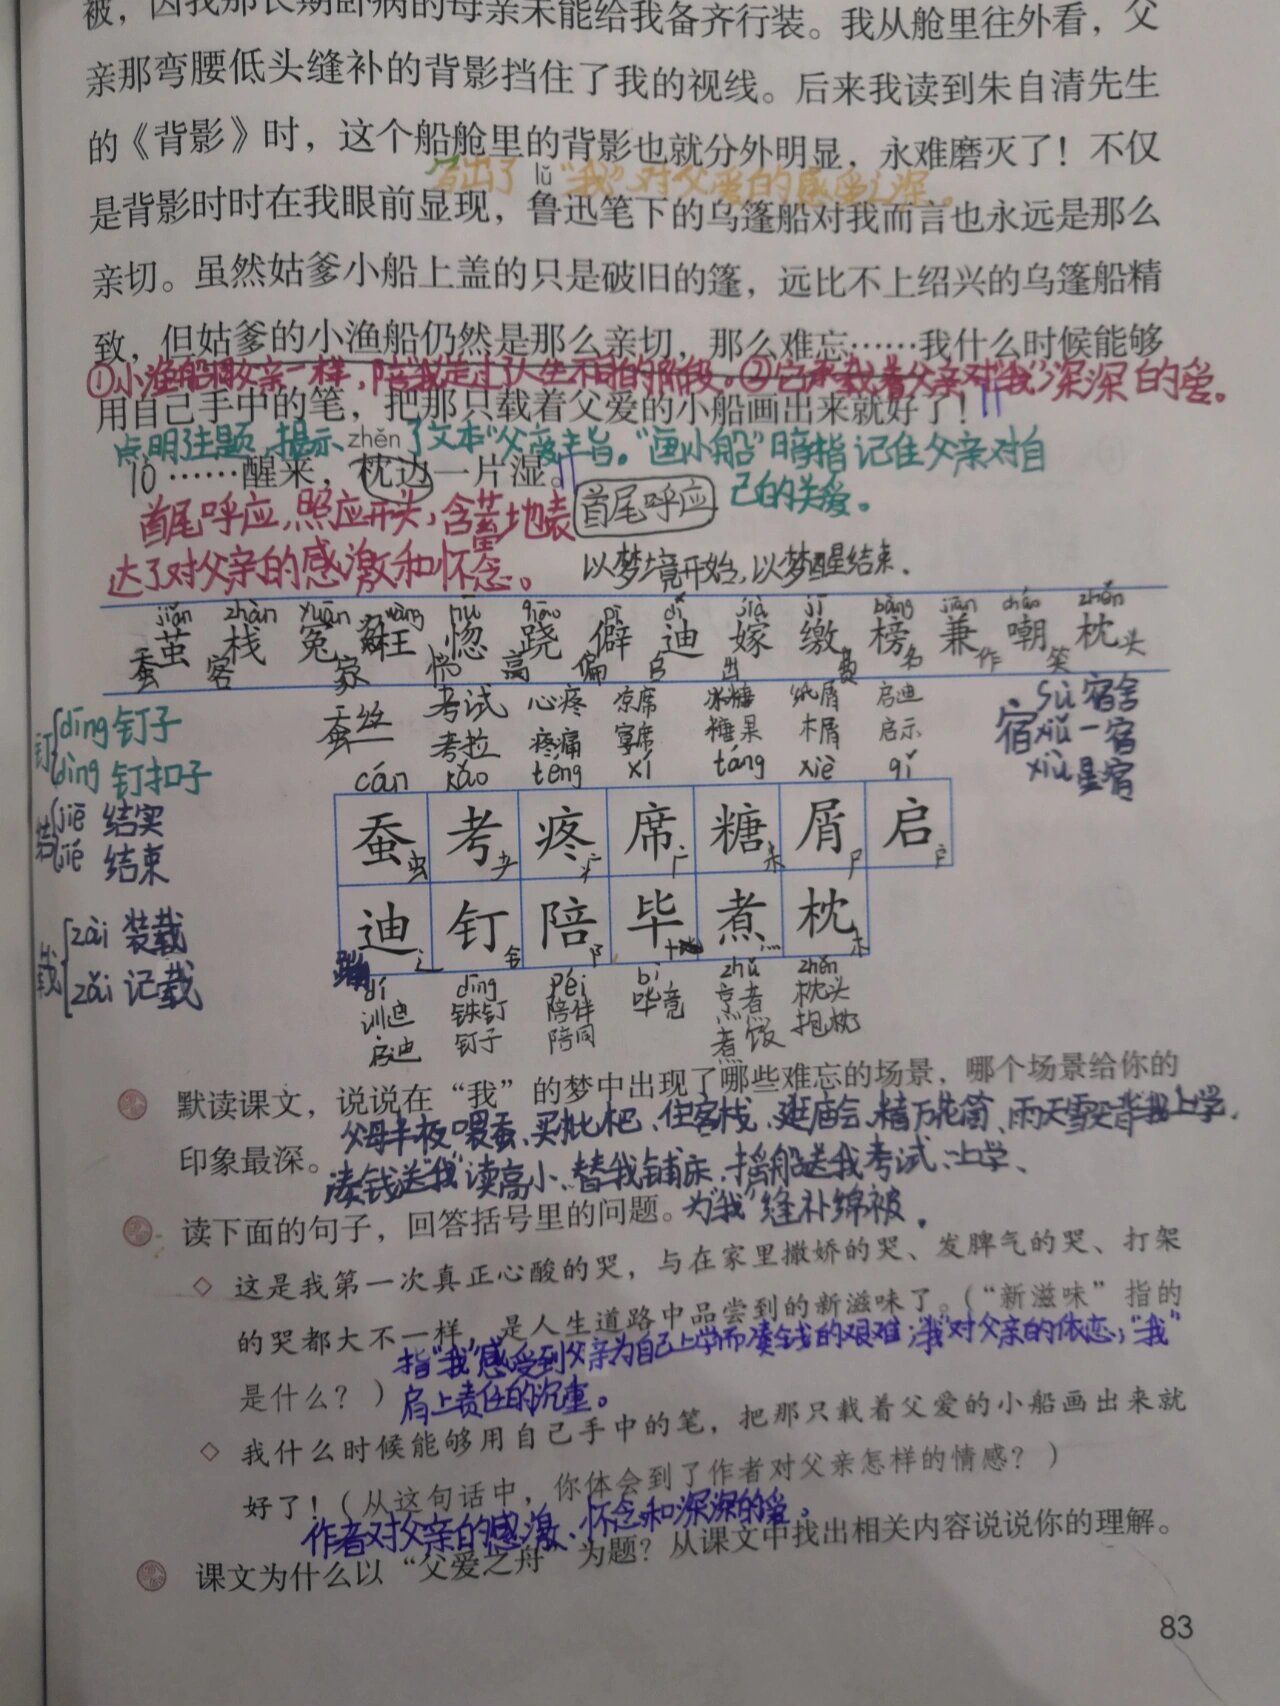 被，因我那长期卧病的母亲未能给我备齐行装。我从舱里往外看，父
亲那弯腰低头缝补的背影挡住了我的视线。后来我读到朱自清先生
的《背影》时，这个船舱里的背影也就分外明显，永难磨灭了！不仅
写出了“我”对父爱的感受之深。
lǔ
是背影时时在我眼前显现，鲁迅笔下的乌篷船对我而言也永远是那么
亲切。虽然姑爹小船上盖的只是破旧的篷，远比不上绍兴的乌篷船精
致，但姑爹的小渔船仍然是那么亲切，那么难忘……我什么时候能够
①小渔船同父亲一样，陪我走过了人生不同的阶段。②它承载着父亲对“我”深深的爱。
用自己手中的笔，把那只载着父爱的小船画出来就好了！
点明主题，揭示了文本“父爱主旨。“画小船”暗指记住父亲对自
己的关爱。
zhěn
10……醒来，枕边一片湿。
首尾呼应
首尾呼应，照应开头，含蓄地表
达了对父亲的感激和怀念。
以梦境开始，以梦醒结束.
jiǎn zhàn yuān wǎng hū qiāo pì dí jià jī bǎng jiān cháo zhěn
茧 栈 冤 枉 惚 跷 僻 迪 嫁 缴 榜 兼 嘲 枕
蚕 客 家 恍 高 偏 启 出 费 名 作 笑 头
蚕丝 考试 心疼 凉席 冰糖 纸屑 启迪
考拉 疼痛 宴席 糖果 木屑 启示
cán kǎo téng xí táng xiè qǐ
钉 dīng 钉子
dìng 钉扣子
宿 sù 宿舍
xiǔ 一宿
xiù 星宿
结 jiē 结实
jié 结束
蚕 考 疼 席 糖 屑 启
虫 耂 疒 广 米 尸 户
载 zài 装载
zǎi 记载
迪 钉 陪 毕 煮 枕
辶 阝 十 灬 木
dí dīng péi bì zhǔ zhěn
训迪 铁钉 陪伴 毕竟 烹煮 枕头
启迪 钉子 陪同 煮饭 抱枕
默读课文，说说在“我”的梦中出现了哪些难忘的场景，哪个场景给你的
父母半夜喂蚕、买枇杷、住客栈、逛庙会、糊万花筒、雨天雪天背我上学.
印象最深。
凑钱送“我”读高小、替我铺床、摇船送我考试、上学、
为“我”缝补绵被.
读下面的句子，回答括号里的问题。
◇ 这是我第一次真正心酸的哭，与在家里撒娇的哭、发脾气的哭、打架
的哭都大不一样，是人生道路中品尝到的新滋味了。（“新滋味”指的
指“我”感受到父亲为自己上学而凑钱的艰难；“我”对父亲的依恋；“我”
是什么？）
肩上责任的沉重。
◇ 我什么时候能够用自己手中的笔，把那只载着父爱的小船画出来就
好了！（从这句话中，你体会到了作者对父亲怎样的情感？）
作者对父亲的感激、怀念和深深的爱。
课文为什么以“父爱之舟”为题？从课文中找出相关内容说说你的理解。
83